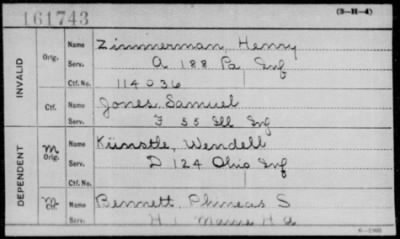 161743
(3-H-4)
INVALID
Orig.
Name Zimmerman, Henry
Serv. A 188 Pa Inf
Ctf. No. 114036
Ctf.
Name Jones, Samuel
Serv. F 55 Ill Inf
DEPENDENT
M Orig.
Name Künstle, Wendell
Serv. D 124 Ohio Inf
Ctf. No.
Ctf. Name Bennett, Phineas S
Serv. H 1 Maine H A